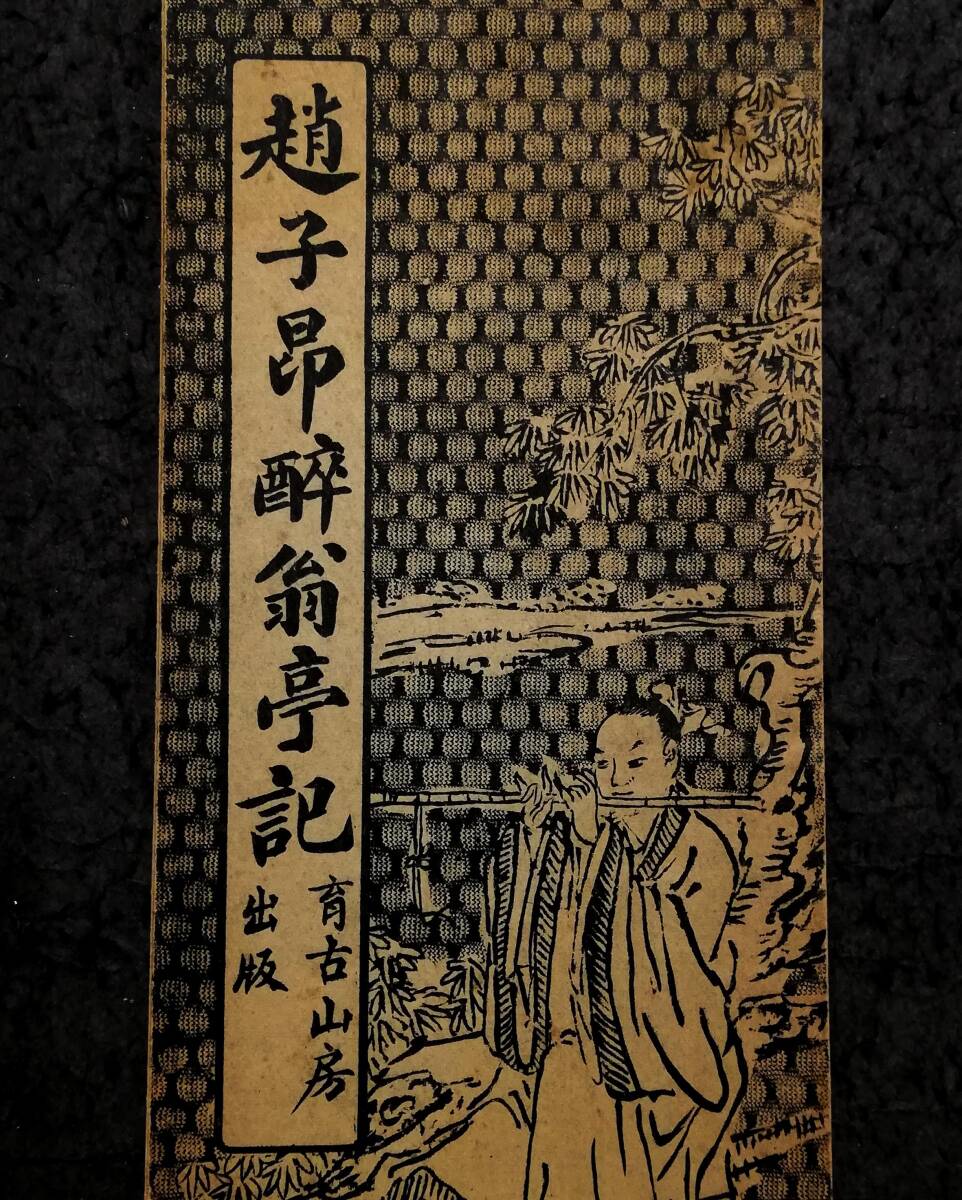 趙子昂醉翁亭記
育古山房
出版